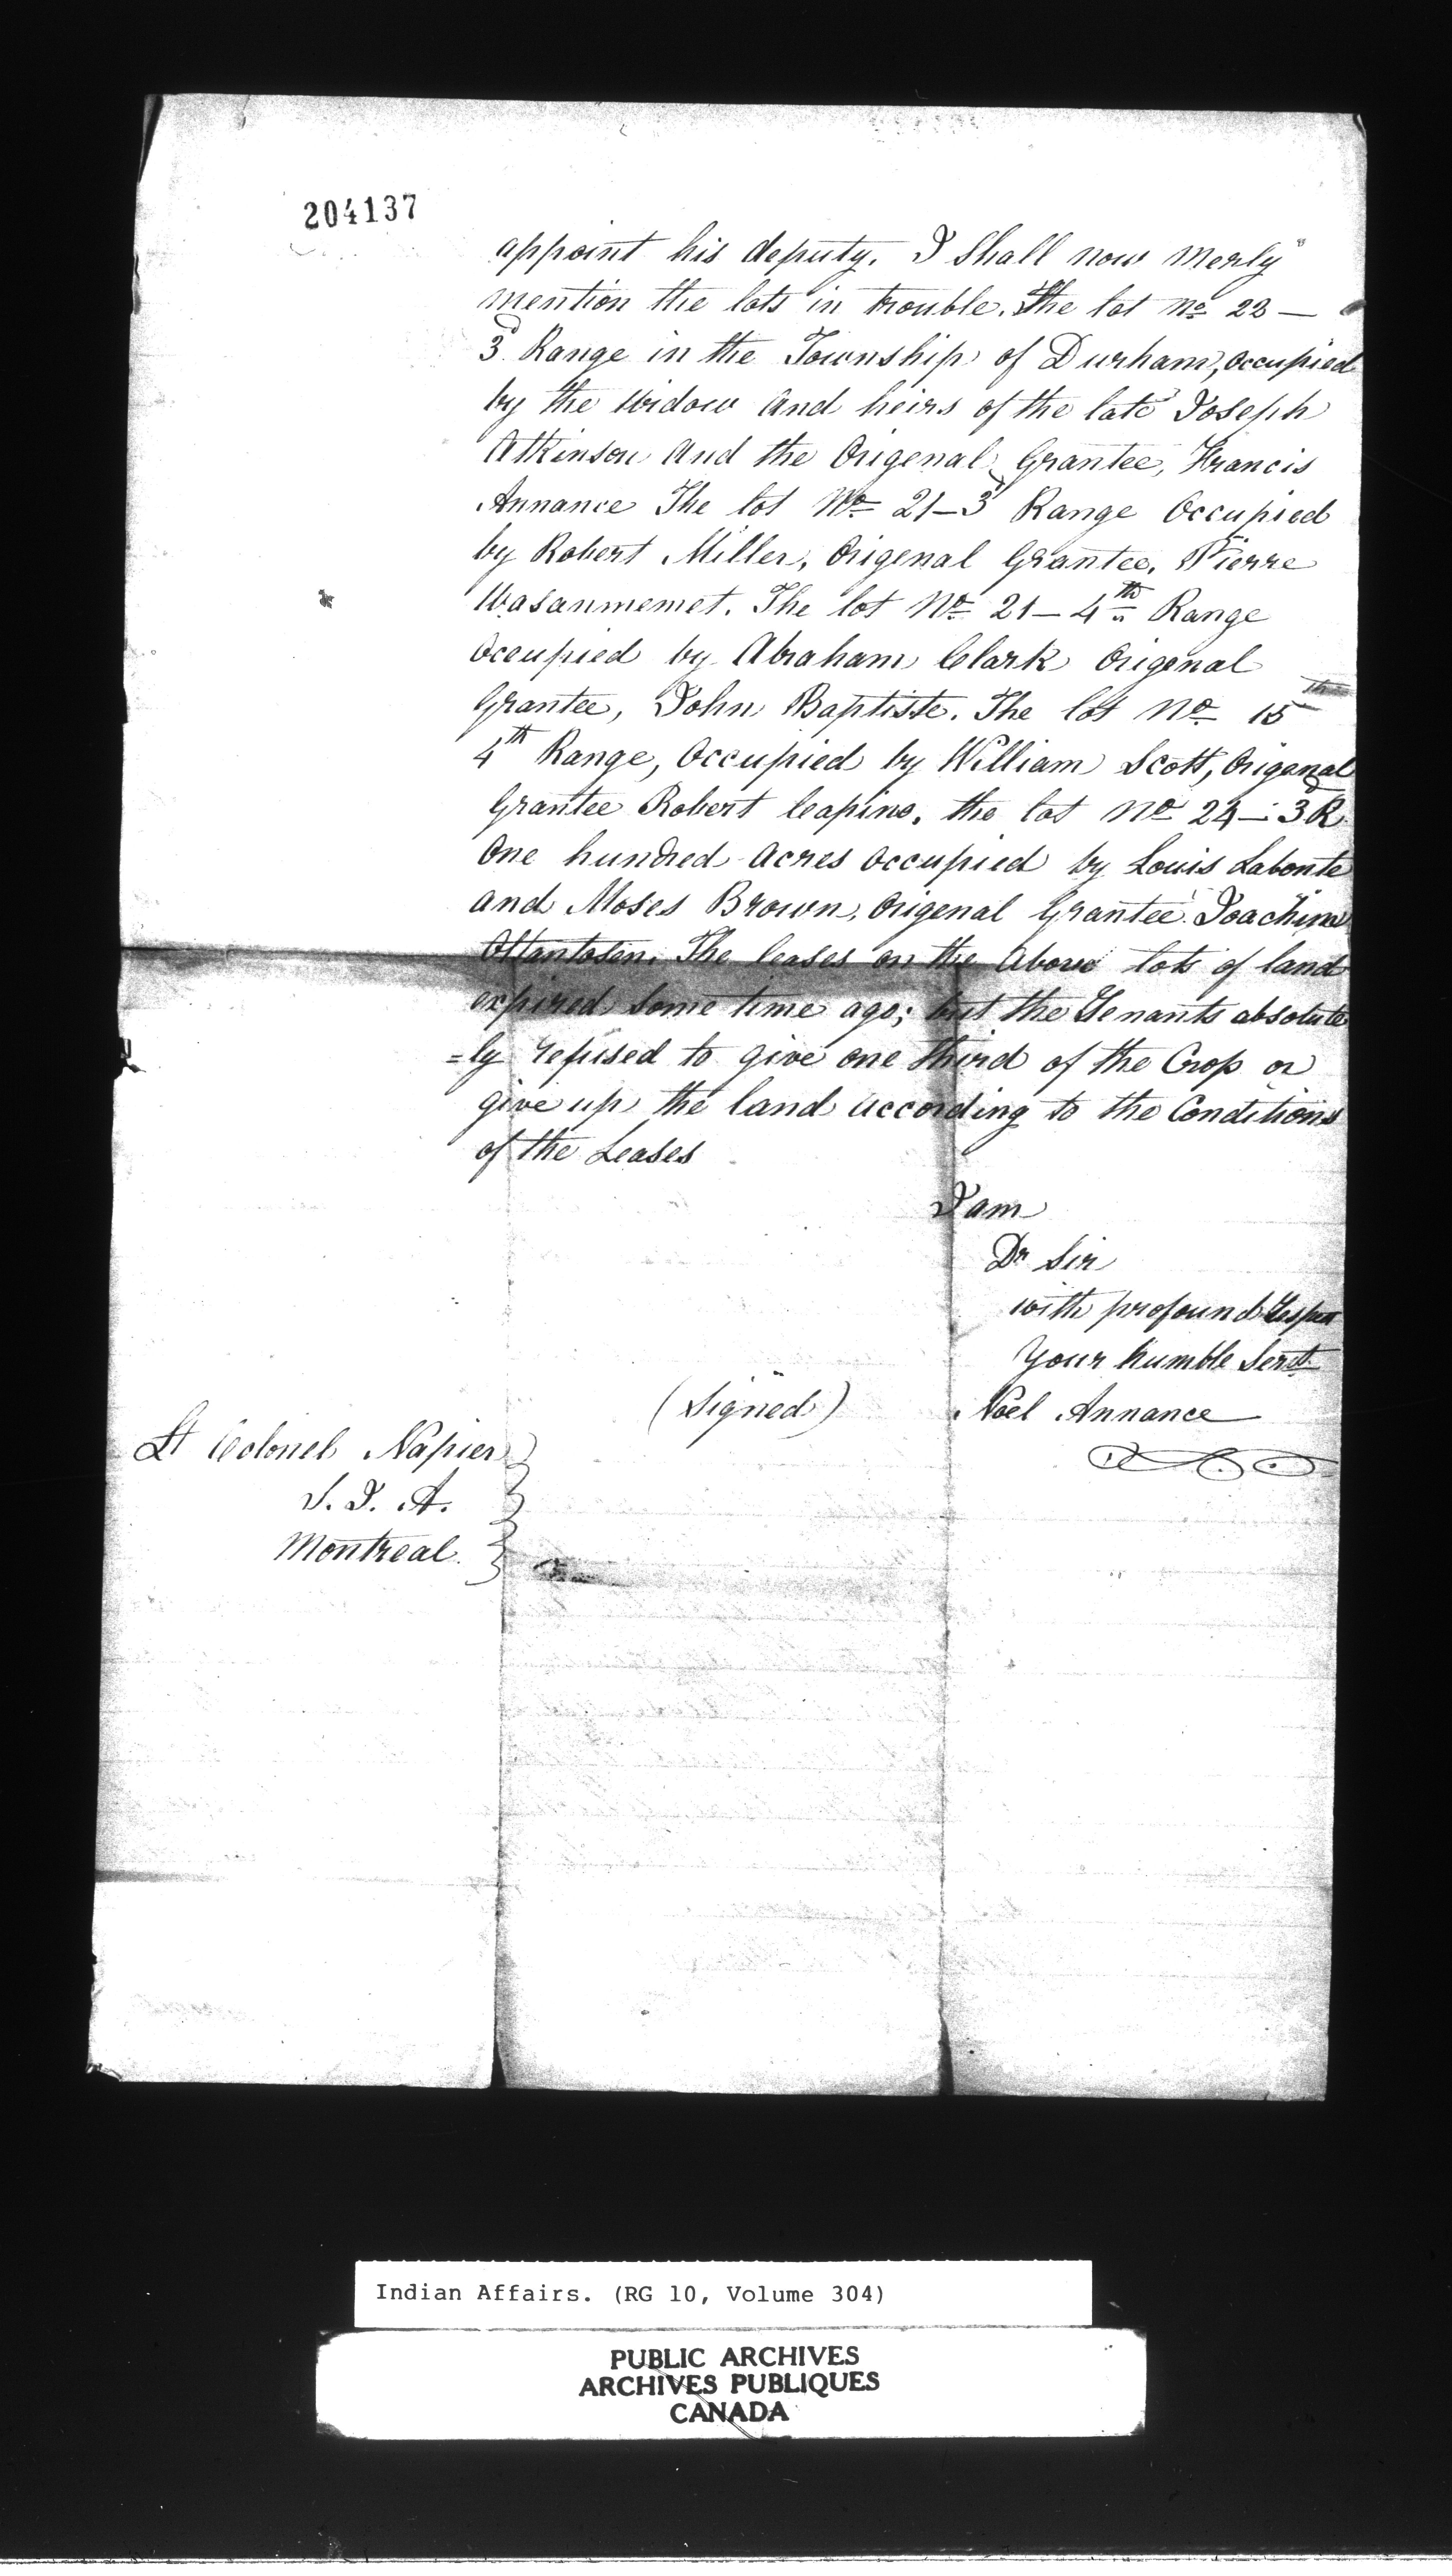 204137
appoint his deputy. I Shall now merly
mention the lots in trouble. The lot No 22 —
3d Range in the Township of Durham, occupied
by the widow and heirs of the late Joseph
Atkinson and the Origenal Grantee, Francis
Annance The lot No 21 — 3d Range Occupied
by Robert Miller, Origenal Grantee, Pierre
Wasanmemet. The lot No 21 — 4th Range
Occupied by Abraham Clark Origenal
Grantee, John Baptiste. The lot No 15
4th Range, Occupied by William Scott, Origenal
Grantee Robert leapino. the lot No 24 — 3d R.
One hundred acres occupied by Louis Labonte
and Moses Brown, Origenal Grantee Joachim
Ottantosen. The leases on the above lots of land
expired some time ago; but the Tenants absolute
=ly refused to give one third of the Crop or
give up the land according to the Conditions
of the Leases
I am
Dr Sir
with profound Respect
Your humble Servt
(Signed) Noel Annance
Lt Colonel Napier
S. I. A.
Montreal
Indian Affairs. (RG 10, Volume 304)
PUBLIC ARCHIVES
ARCHIVES PUBLIQUES
CANADA